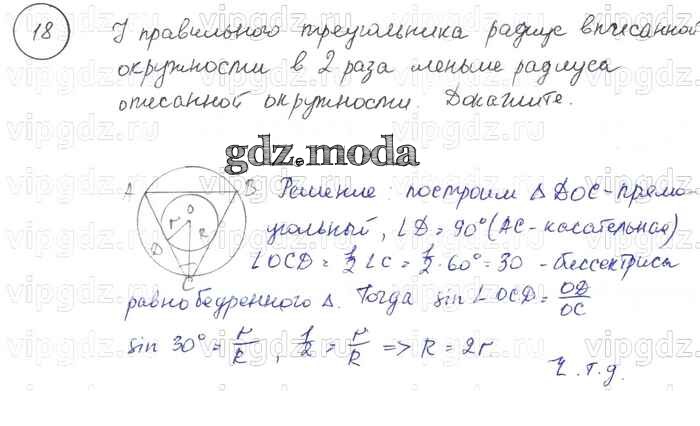 18
У правильного треугольника радиус вписанной
окружности в 2 раза меньше радиуса
описанной окружности. Докажите.
gdz.moda
A B Решение: построим △ DOC - прямо
O r R D C
угольный, ∠D = 90° (AC - касательная)
∠OCD = 1/2 ∠C = 1/2 · 60° = 30 - биссектриса
равнобедренного △. Тогда sin ∠OCD = OD/OC
sin 30° = r/R, 1/2 = r/R => R = 2r.
Ч.т.д.
vipgdz.ru